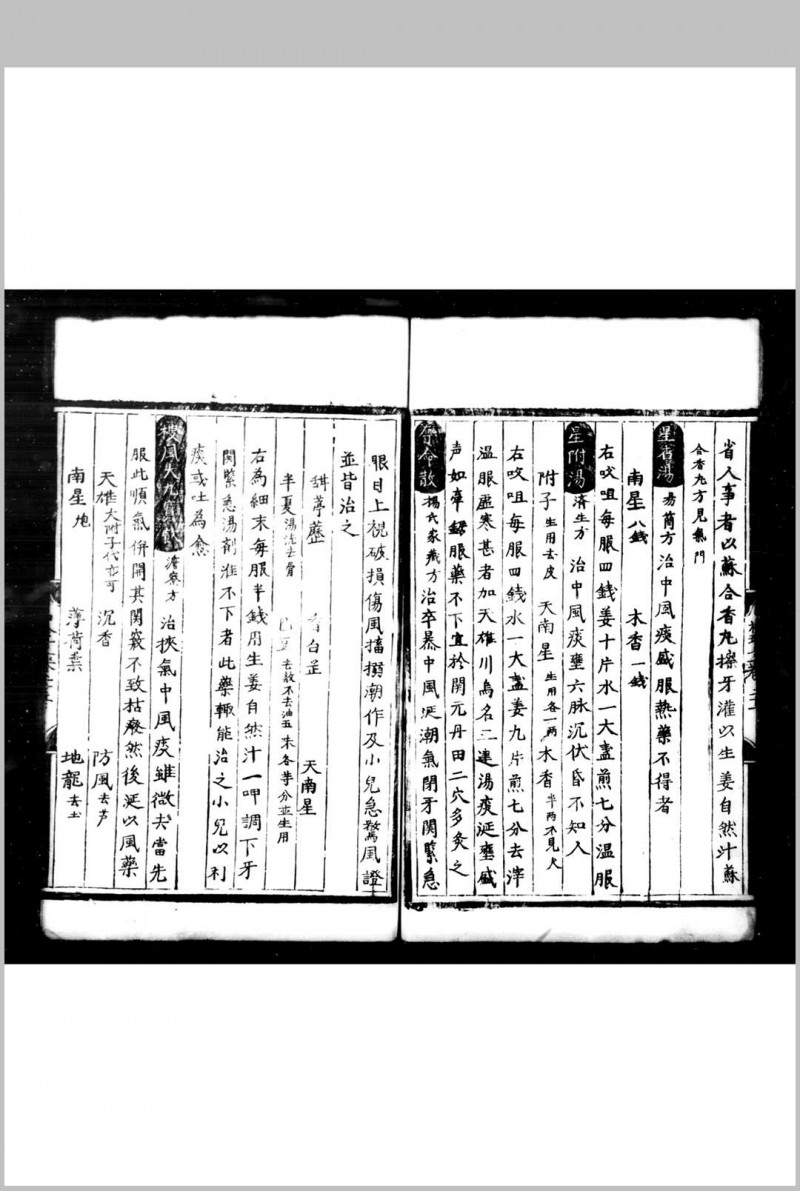 省人事者以蘇合香丸擦牙灌以生姜自然汁蘇
合香丸方見氣門
星香湯 易簡方治中風痰盛服熱藥不得者
南星八錢 木香一錢
右㕮咀每服四錢姜十片水一大盞煎七分溫服
星附湯 濟生方 治中風痰壅六脉沉伏昏不知人
附子生用去皮 天南星生用各一兩 木香半兩不見火
右㕮咀每服四錢水一大盞姜九片煎七分去滓
溫服虛寒甚者加天雄川烏名三建湯痰涎壅盛
声如牽鋸服藥不下宜於関元丹田二穴多灸之
奪命散 楊氏家藏方治卒暴中風涎潮氣閉牙関緊急
眼目上視破損傷風搐搦潮作及小兒急驚風證
並皆治之
甜葶藶 香白芷 天南星
半夏湯洗去滑 巴豆去殼不去油五味各等分並生用
右為細末每服半錢用生姜自然汁一呷調下牙
関緊急湯劑灌不下者此藥輙能治之小兒以利
痰或吐為愈
搜風大九 濟家方 治挾氣中風疫雖微去當先
服此順氣併開其関竅不致枯廢然後進以風藥
天雄大附子代亦可 沉香 防風去芦
南星炮 薄荷葉 地龍去土